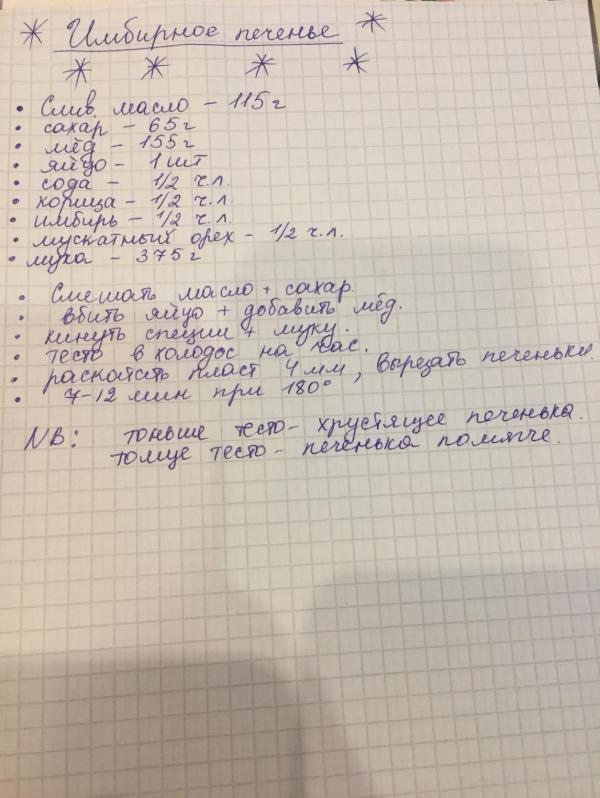 Имбирное печенье
• Слив. масло – 115 г
• сахар – 65 г
• мёд – 155 г
• яйцо – 1 шт
• сода – 1/2 ч.л.
• корица – 1/2 ч.л.
• имбирь – 1/2 ч.л.
• мускатный орех – 1/2 ч.л.
• мука – 375 г
• Смешать масло + сахар.
• вбить яйцо + добавить мёд.
• кинуть специи + муку.
• тесто в холодос на час.
• раскатать пласт 4 мм, вырезать печеньки.
• 7-12 мин при 180°
NB: тоньше тесто – хрустящее печенька.
толще тесто – печенька помягче.